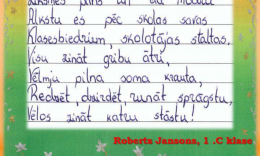 Alkstu es pēc skolas savas
Klasesbiedriem, skolotājas staltas,
Visu zināt gribu ātri,
Vēlmju pilna soma krauta,
Redzēt, dzirdēt, runāt sprāgstu,
Vēlos zināt katru stāstu!
Roberts Jansons, 1 .C klase